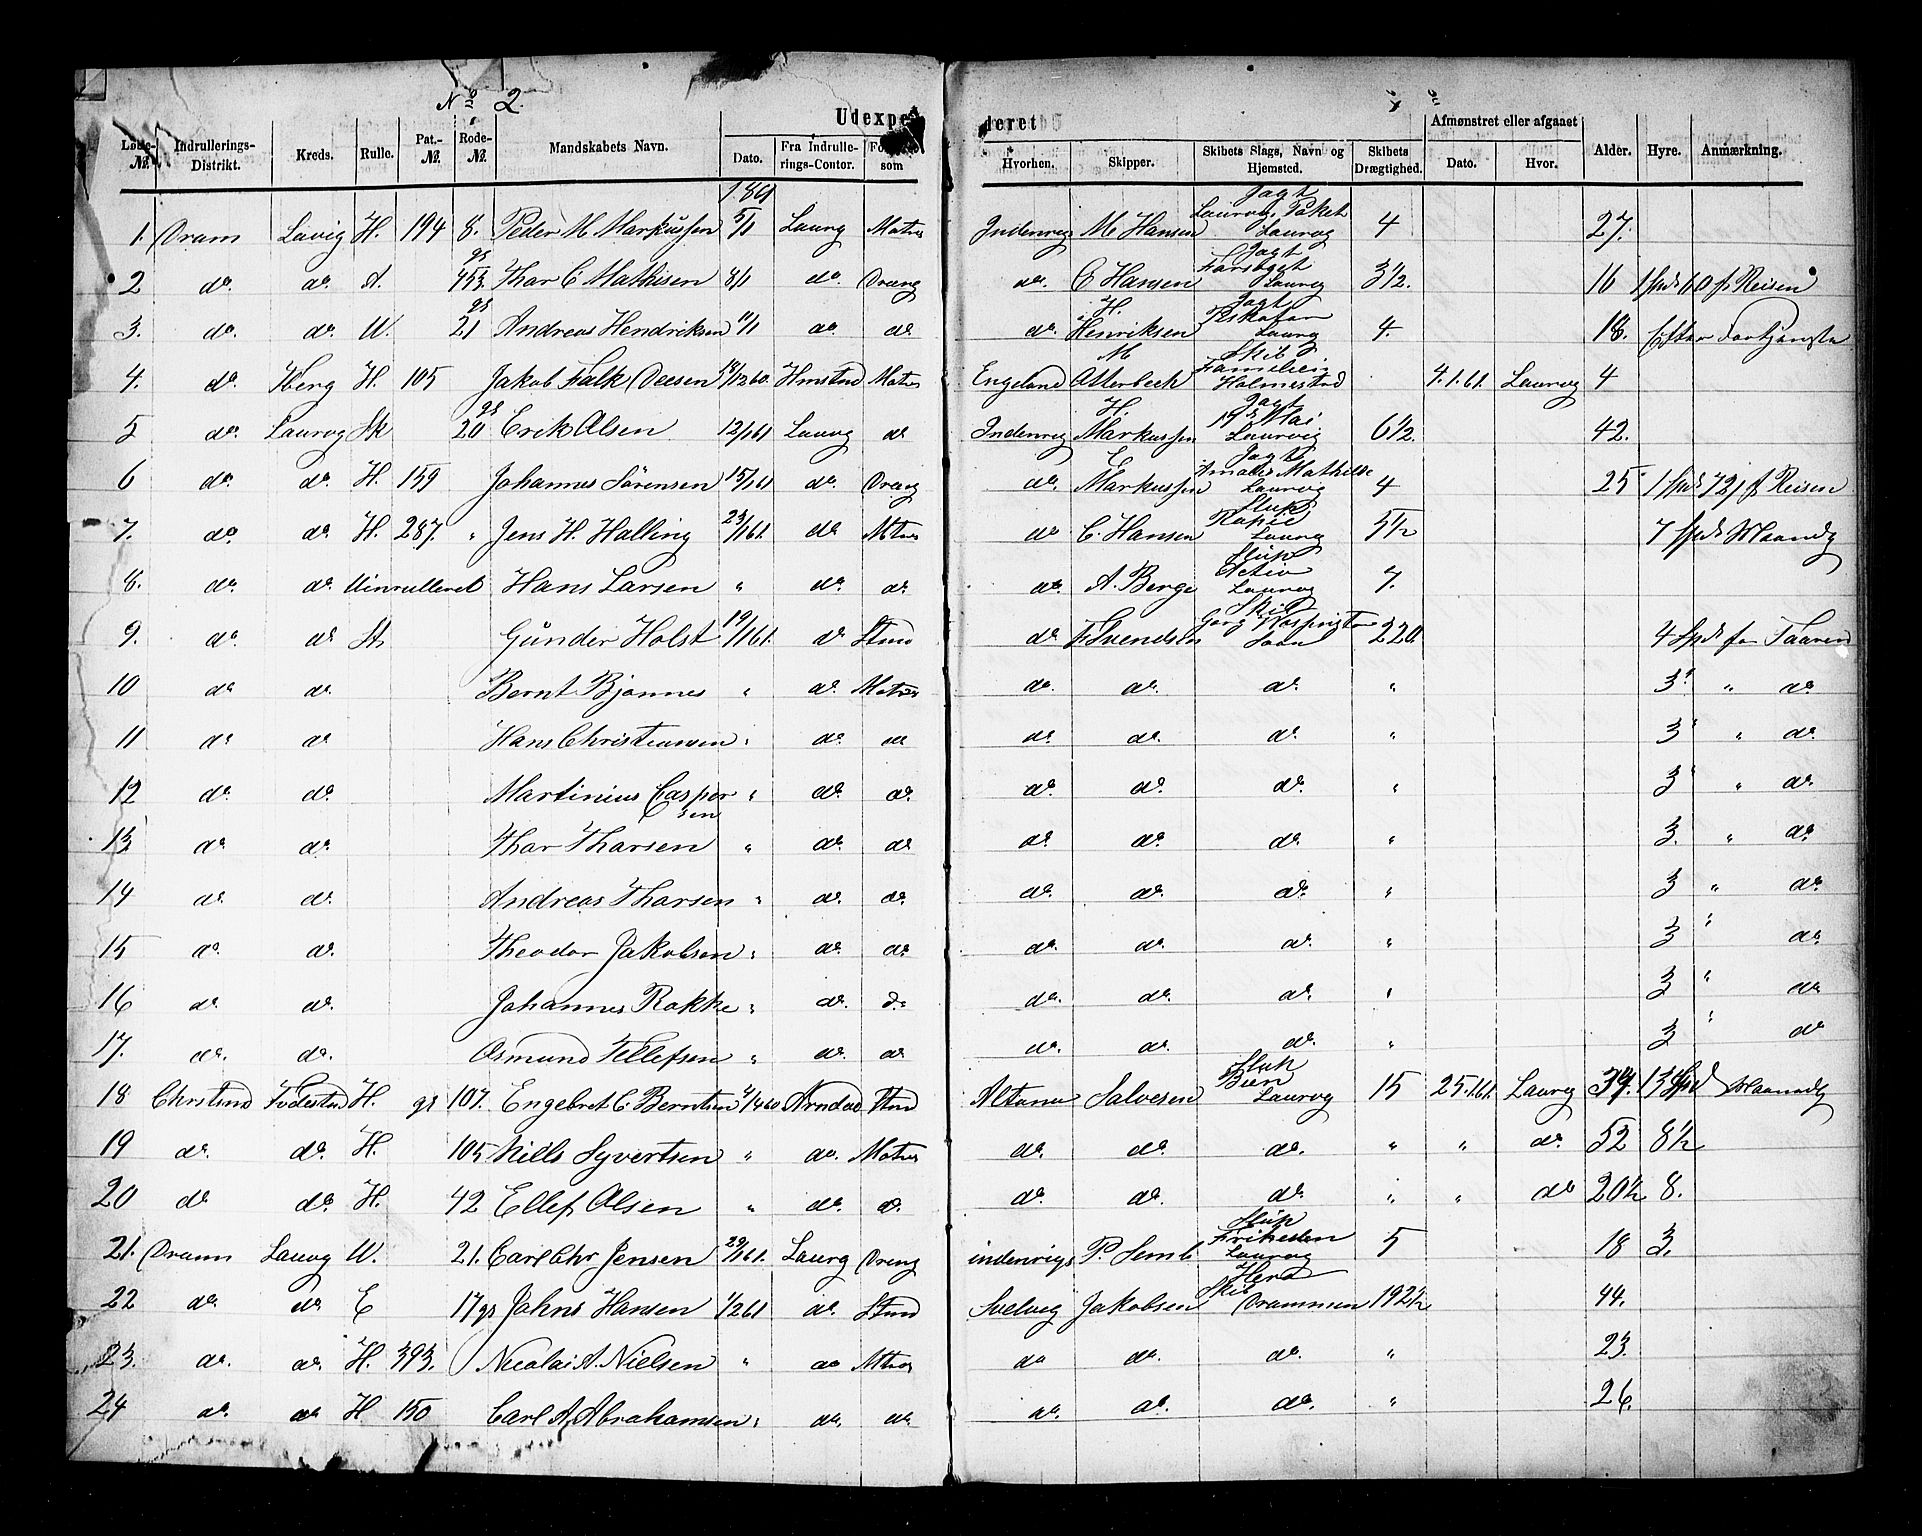 No 2.
Udexpederet
Løbe-No. Indrullerings-Distrikt. Kreds. Rulle. Pat.-No. Rode-No. Mandskabets Navn. Dato. Fra Indrullerings-Contor. som Hvorhen. Skipper. Skibets Slags, Navn og Hjemsted. Skibets Drægtighed. Afmønstret eller afgaaet Dato. Hvor. Alder. Hyre. Anmærkning.
1861
1. Dram Lavig H. 194 8. Peder M Markussen 5/1 Laurg Matros Indenrigs M Hansen Jagt Laurvigs Paket Laurvg 4 27.
2 do. do. A. 93 453. Thor C Mathisen 8/1 do. Dreng do. C Hansen Jagt Forsøget Laurvg 3 1/2. 16 1 spd 60 p Reisen
3. do. do. W. 93 21 Andreas Hendriksen 11/1 do. do do. H. Henriksen Jagt Laurvg 4. 18. Efter Fortjeneste
4. do. H. 105 Jakob Falk Deesen 14/12 60. Hmstad Matros Engeland M Atterbeck Skib Familien Holmestad 4.1.61. Laurvg 4
5 do. Laurvg Sk 93 20 Erik Olsen 12/1 61 Laurvg do Indenrig H. Markussen Jagt 19de Mai Laurvig 6 1/2. 42.
6 do. do. H. 159 Johannes Sørensen 15/1 61 do. Dreng do. E Markussen Jagt Amalie Mathilde Laurvig 4 25 1 spd 72 p Reisen
7. do. do. H. 287. " Jens H. Halling 23/1 61. do. Mtros do C. Hansen Slup Laurvg 5 1/2 7 spd Maandg
8. do. do. Uinrulleret Hans Larsen " do. do. do. A. Berge Slup Activ Laurvg 7.
9. do do St Gunder Holst 19/1 61. do Stmd do F Svendsen Skib Georg Wasington 220. 4 spd for Touren
10 do do. Bernt Bjønnes " do. Matros do. do. do. " 3. " do.
11 do do Hans Christiansen " do. do do. do. do. " 3 " do.
12 do. do. Martinius Casper sen " do. do. do. do. do. " 3 " do.
13 do. do. Thor Thorsen " do. do do. do. do. " 3. " do.
14 do. do. Andreas Thorsen " do. do. do. do. do. " 3 " do.
15 do. do. Theodor Jakobsen " do. do. do. do. do. " 3 " do.
16 do. do. Johannes Rakke " do. do do. do. do. " 3 " do
17. do. do. Osmund Tellefsen " do. do do. do. do. " 3 " do
18 Christsnd H. 93 107. Engebret C. Berntsen 1/4 60 Arndal Stmd Altona Salvesen Slup Bien Laurvg 15 25.1.61. Laurvg 39. 13 spd Maandg
19 do. do. H. 105 Nills Syvertsen " do. Matros do. do. do. " " do. 52 8 1/2
20 do do. H. 42 Ellef Olsen " do. do. do. do. do. " " do 20 1/2 8.
21. Dram Laurvg W. 21. Carl Chr Jensen 29/1 61. Laurg Dreng indenrigs P. Semb Slup Friheden Laurvg 5 18 3.
22 do. do E 17 93 Johns Hansen 1/2 61 do. Stmd Svelvig Jakobsen Skib Hera Drammen 192 1/2 44.
23. do. do. H. 393. Nicolai A. Nielsen " do Mtros do do. do. " 23.
24 do. do H 150 Carl A Abrahamsen " do. do. do. do. do. " 26.